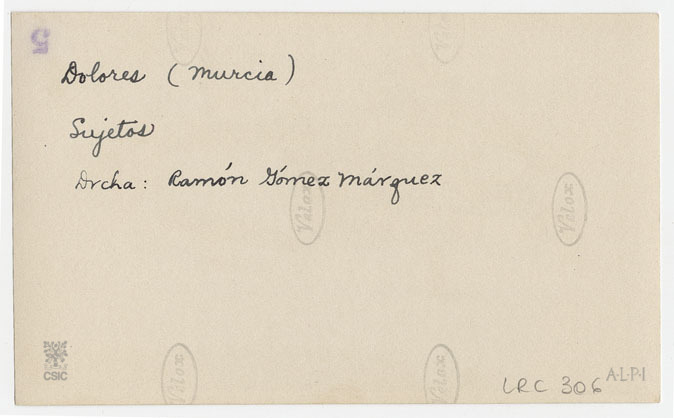 5
Dolores (Murcia)
Sujetos
Drcha: Ramón Gómez Márquez
Velox
Velox
Velox
Velox
CSIC
LRC 306
A·L·P·I